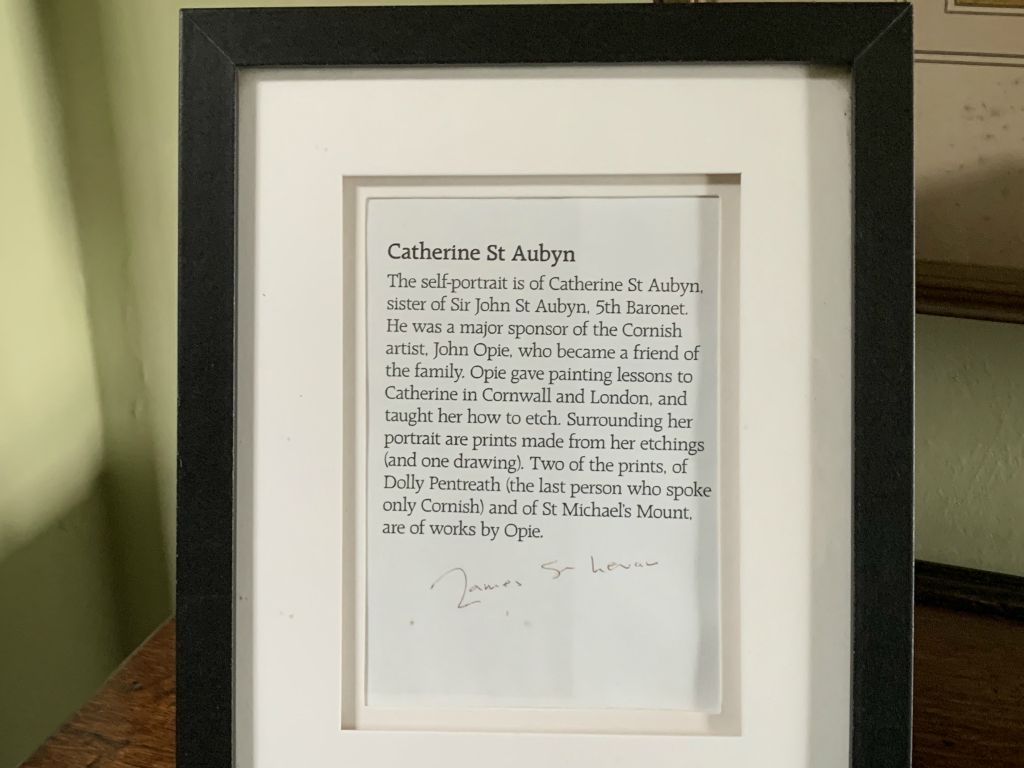 Catherine St Aubyn
The self-portrait is of Catherine St Aubyn,
sister of Sir John St Aubyn, 5th Baronet.
He was a major sponsor of the Cornish
artist, John Opie, who became a friend of
the family. Opie gave painting lessons to
Catherine in Cornwall and London, and
taught her how to etch. Surrounding her
portrait are prints made from her etchings
(and one drawing). Two of the prints, of
Dolly Pentreath (the last person who spoke
only Cornish) and of St Michael's Mount,
are of works by Opie.
James St Levan